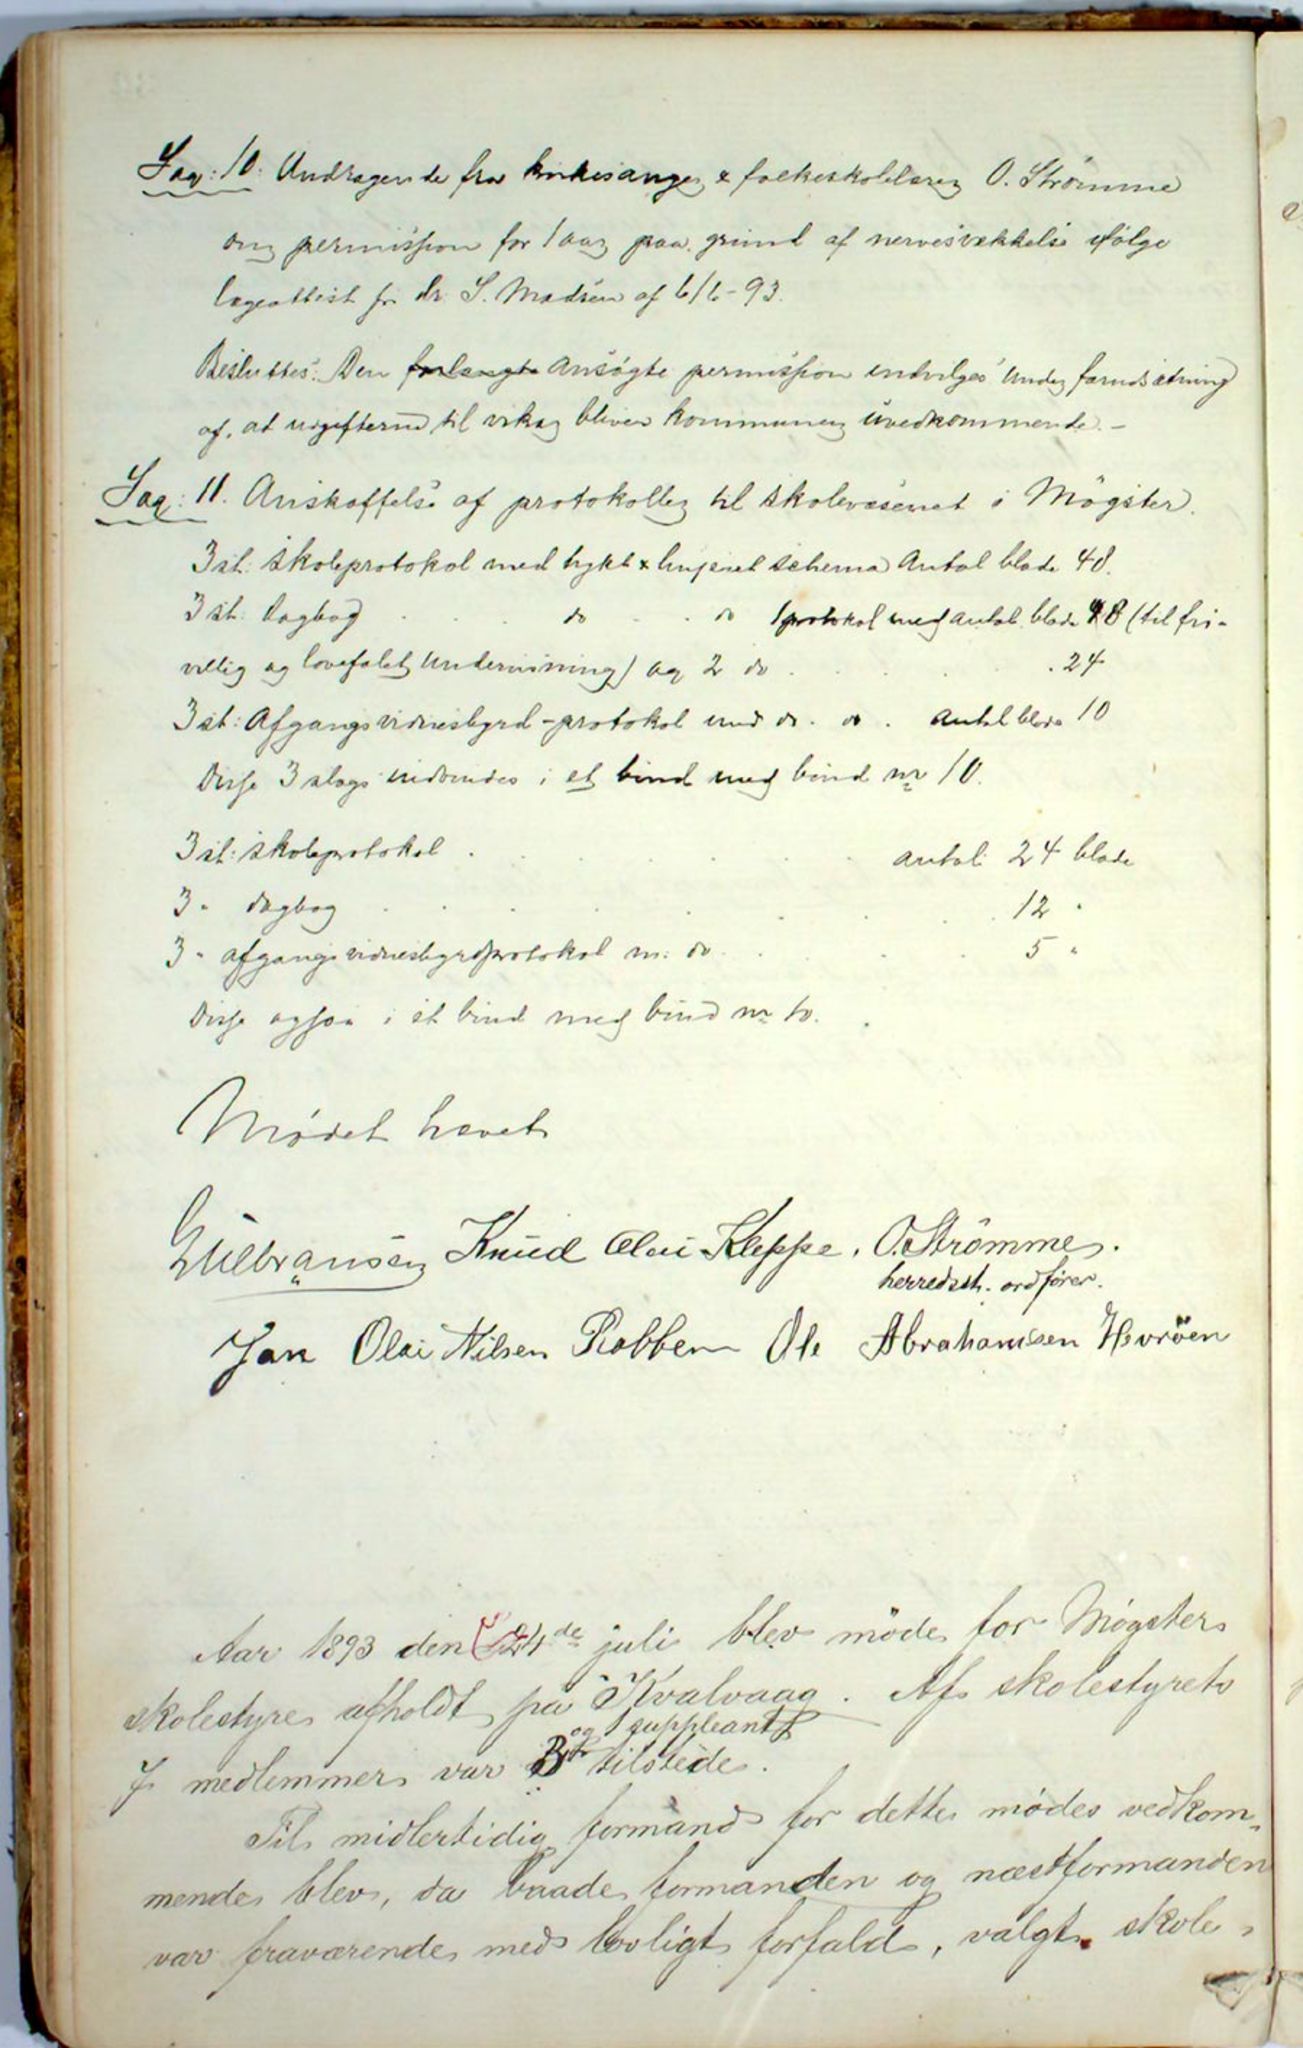 Sag: 10. Andragende fra kirkesanger & folkeskolelærer O. Strømme
om permission for 1 aar paa grund af nervesvækkelse ifølge
lægeattest fr dr. S. Madsen af 6/6-93.
Besluttes: Den forlangte ansøgte permission indvilges under forudsætning
af, at udgifterne til vikar bliver kommunen uvedkommende. -
Sag: 11. Anskaffelse af protokoller til skolevæsenet i Møgster.
3 st: skoleprotokol med trykt & linjeret schema Antal blade 48.
3 st: Dagbog . . . do . . do 1 protokol med antal blade 48 (til fri-
villig og lovefalet undervisning) og 2 do . . . . 24
3 st: Afgangsvidnesbyrd-protokol med do. do. antal blade 10
Disse 3 slags indbindes i et bind med bind nr 10.
3 st: skoleprotokol . . . . . . antal 24 blade
3 " dagbog . . . . . . . . 12 "
3 " afgangsvidnesbyrdprotokol m. do . . . . 5 "
Disse ogsaa i et bind med bind nr 10.
Mødet hævet
Gulbransen Knud Olai Kleppe. O. Strømme.
herredsst. ordfører.
Jan Olai Nilsen Rabben Ole Abrahamsen Hevrøen
Aar 1893 den 24de juli blev møde for Møgster
skolestyre afholdt på Kvalvaag. Af skolestyrets
og 1 suppleant
7 medlemmer var 3 tilstede.
Til midlertidig formand for dette mødes vedkom-
mende blev, da baade formanden og næstformanden
var fraværende med lovligt forfald, valgt skole-